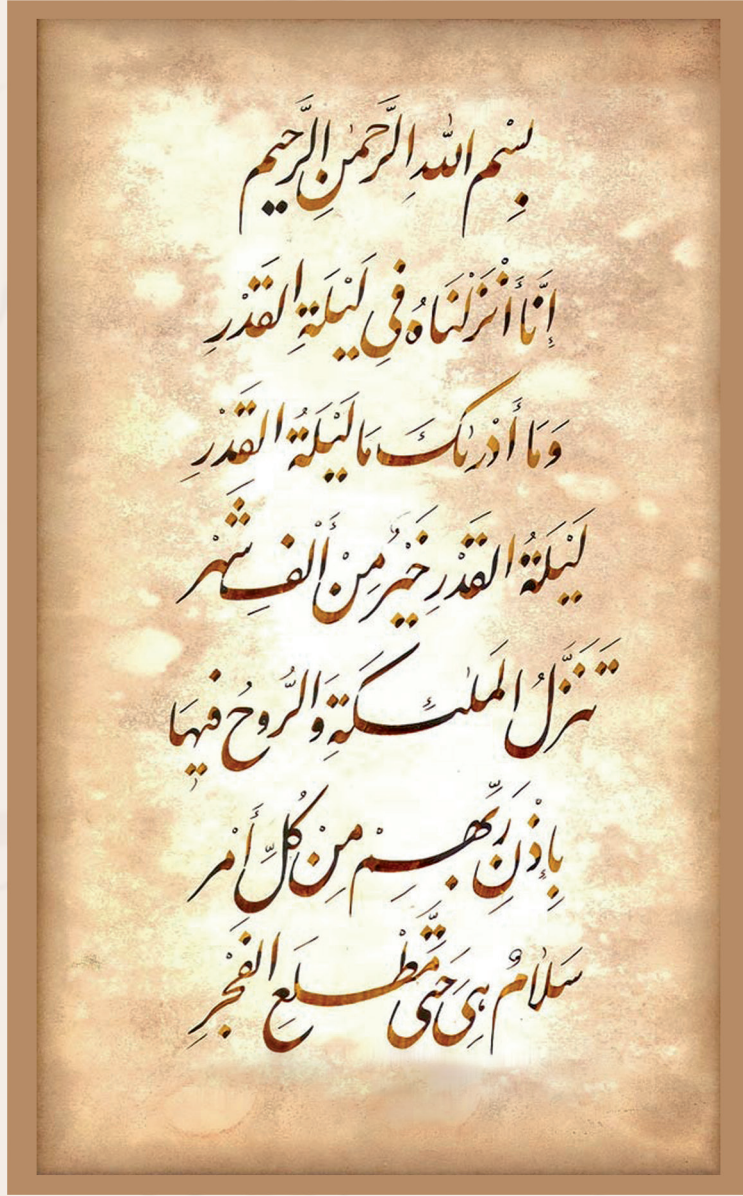 بِسْمِ اللّٰهِ الرَّحمٰنِ الرَّحیم
إِنَّا أَنْزَلنَاهُ فِی لَیْلَةِ القَدْرِ
وَمَا أَدْرٰىكَ مَا لَیْلَةُ القَدْرِ
لَیْلَةُ القَدْرِ خَیْرٌ مِنْ أَلْفِ شَهْر
تَنَزَّلُ المَلٰئِکَةِ وَالرُّوحُ فیهَا
بِإِذْنِ رَبِّهِمْ مِنْ كُلِّ أَمْر
سَلاٰمٌ هِیَ حَتّٰی مَطْلَعِ الفَجْرِ